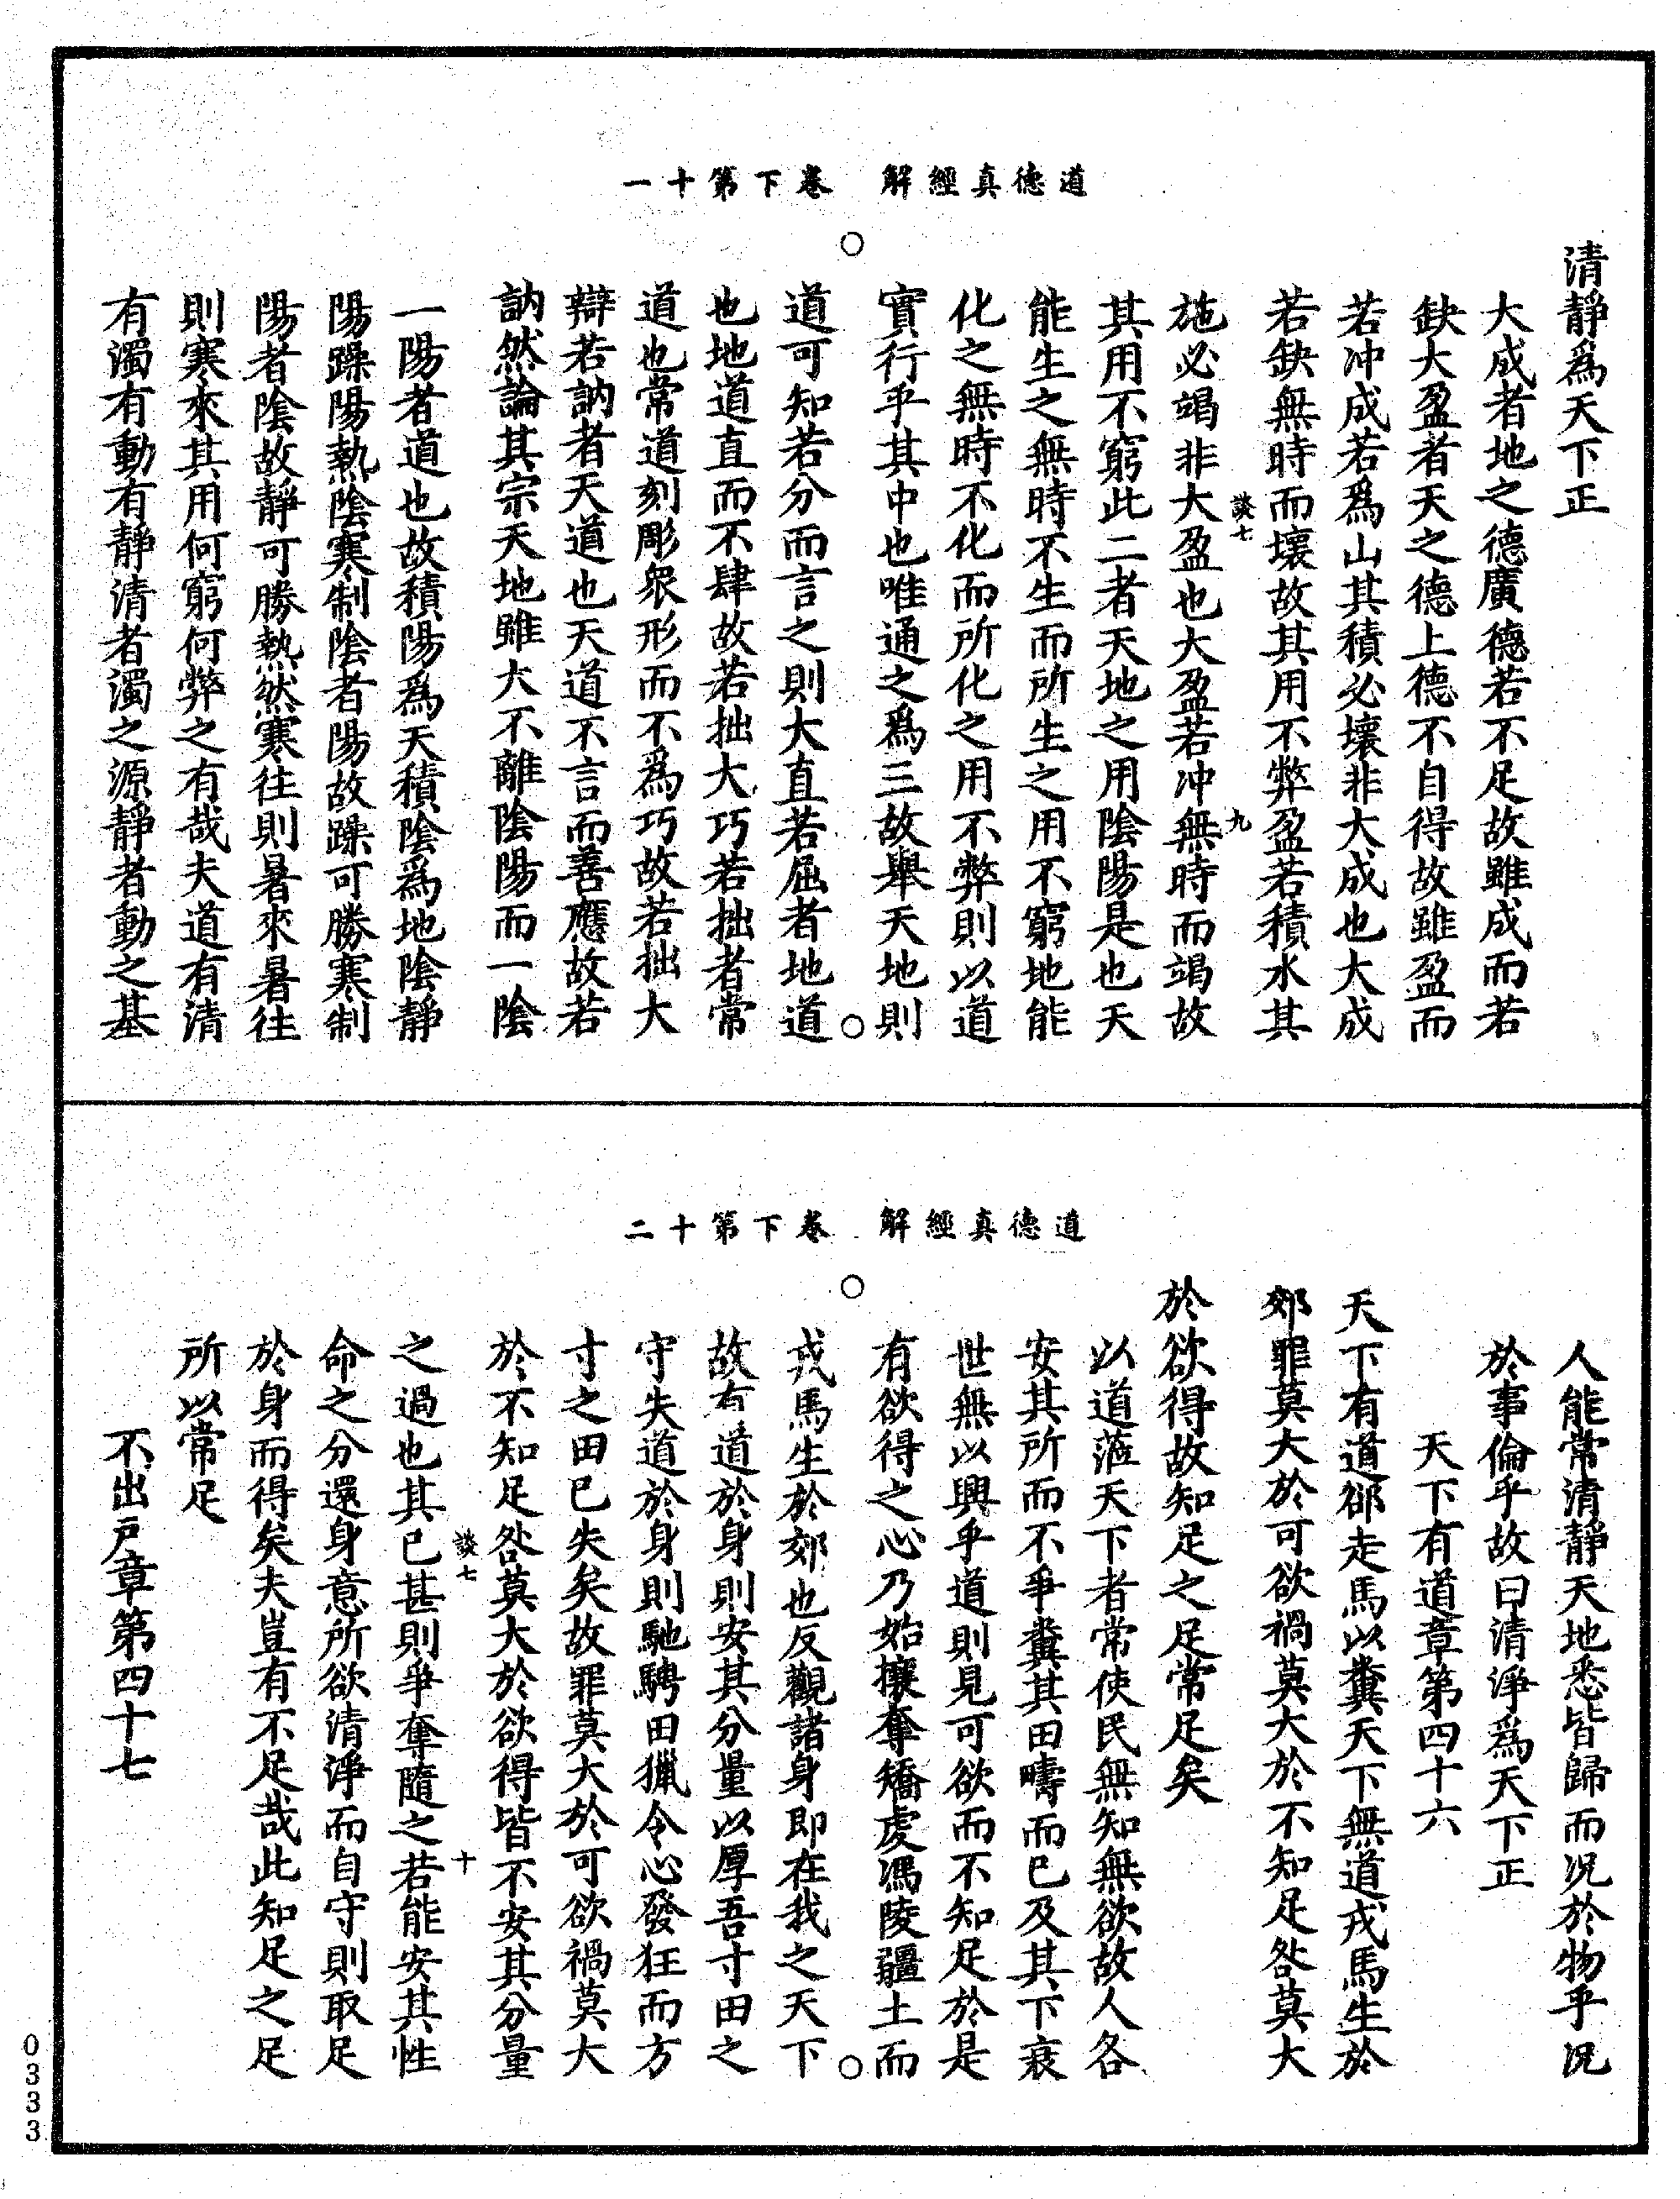 道德真經解　卷下第十一
清靜爲天下正
大成者地之德廣德若不足故雖成而若
缺大盈者天之德上德不自得故雖盈而
若冲成若爲山其積必壞非大成也大成
若缺無時而壞故其用不弊盈若積水其
談七
九
施必竭非大盈也大盈若冲無時而竭故
其用不窮此二者天地之用陰陽是也天
能生之無時不生而所生之用不窮地能
化之無時不化而所化之用不弊則以道
實行乎其中也唯通之爲三故舉天地則
道可知若分而言之則大直若屈者地道
也地道直而不肆故若拙大巧若拙者常
道也常道刻彫衆形而不爲巧故若拙大
辯若訥者天道也天道不言而善應故若
訥然論其宗天地雖大不離陰陽而一陰
一陽者道也故積陽爲天積陰爲地陰靜
陽躁陽熱陰寒制陰者陽故躁可勝寒制
陽者陰故靜可勝熱然寒往則暑來暑往
則寒來其用何窮何弊之有哉夫道有清
有濁有動有靜清者濁之源靜者動之基
道德真經解　卷下第十二
人能常清靜天地悉皆歸而况於物乎况
於事倫乎故曰清淨爲天下正
天下有道章第四十六
天下有道郤走馬以糞天下無道戎馬生於
郊罪莫大於可欲禍莫大於不知足咎莫大
於欲得故知足之足常足矣
以道蒞天下者常使民無知無欲故人各
安其所而不爭糞其田疇而已及其下衰
世無以興乎道則見可欲而不知足於是
有欲得之心乃始攘奪矯虔馮陵疆土而
戎馬生於郊也反觀諸身即在我之天下
故有道於身則安其分量以厚吾寸田之
守失道於身則馳騁田獵令心發狂而方
寸之田已失矣故罪莫大於可欲禍莫大
於不知足咎莫大於欲得皆不安其分量
談七
十
之過也其已甚則爭奪隨之若能安其性
命之分還身意所欲清淨而自守則取足
於身而得矣夫豈有不足哉此知足之足
所以常足
不出戶章第四十七
0333